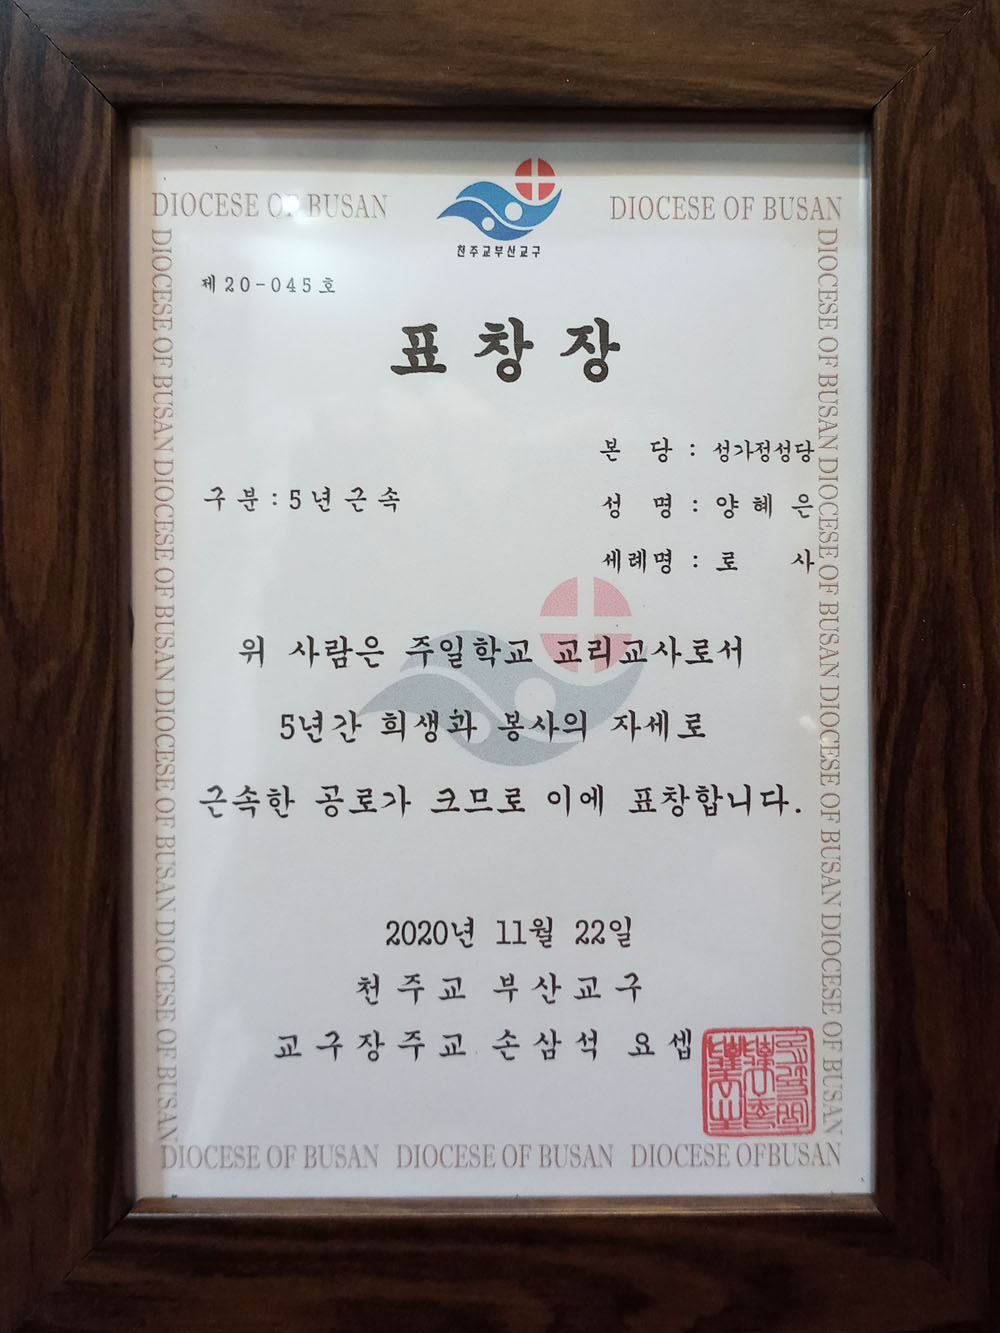 DIOCESE OF BUSAN DIOCESE OF BUSAN
천주교부산교구
제 20-045 호
표 창 장
본 당 : 성가정성당
구 분 : 5 년 근 속
성 명 : 양 혜 은
세례명 : 로 사
위 사람은 주일학교 교리교사로서
5년간 희생과 봉사의 자세로
근속한 공로가 크므로 이에 표창합니다.
2020년 11월 22일
천 주 교 부 산 교 구
교 구 장 주 교 손 삼 석 요 셉
DIOCESE OF BUSAN DIOCESE OF BUSAN DIOCESE OFBUSAN
DIOCESE OF BUSAN DIOCESE OF BUSAN DIOCESE OF BUSAN DIOCESE OF BUSAN
DIOCESE OF BUSAN DIOCESE OF BUSAN DIOCESE OF BUSAN DIOCESE OF BUSAN